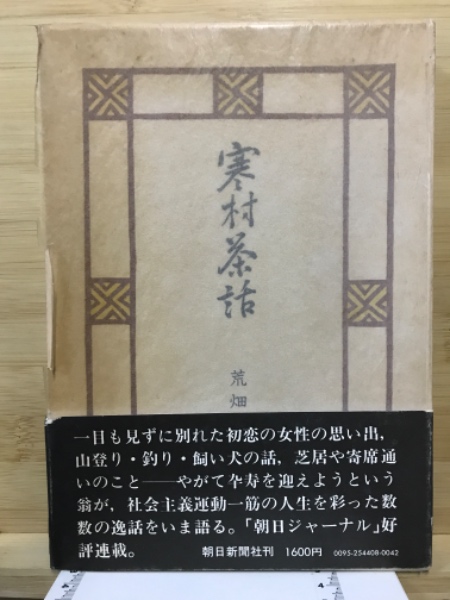 寒村茶話
荒畑
一目も見ずに別れた初恋の女性の思い出,
山登り・釣り・飼い犬の話, 芝居や寄席通
いのこと——やがて卆寿を迎えようという
翁が, 社会主義運動一筋の人生を彩った数
数の逸話をいま語る。「朝日ジャーナル」好
評連載。
朝日新聞社刊 1600円 0095-254408-0042